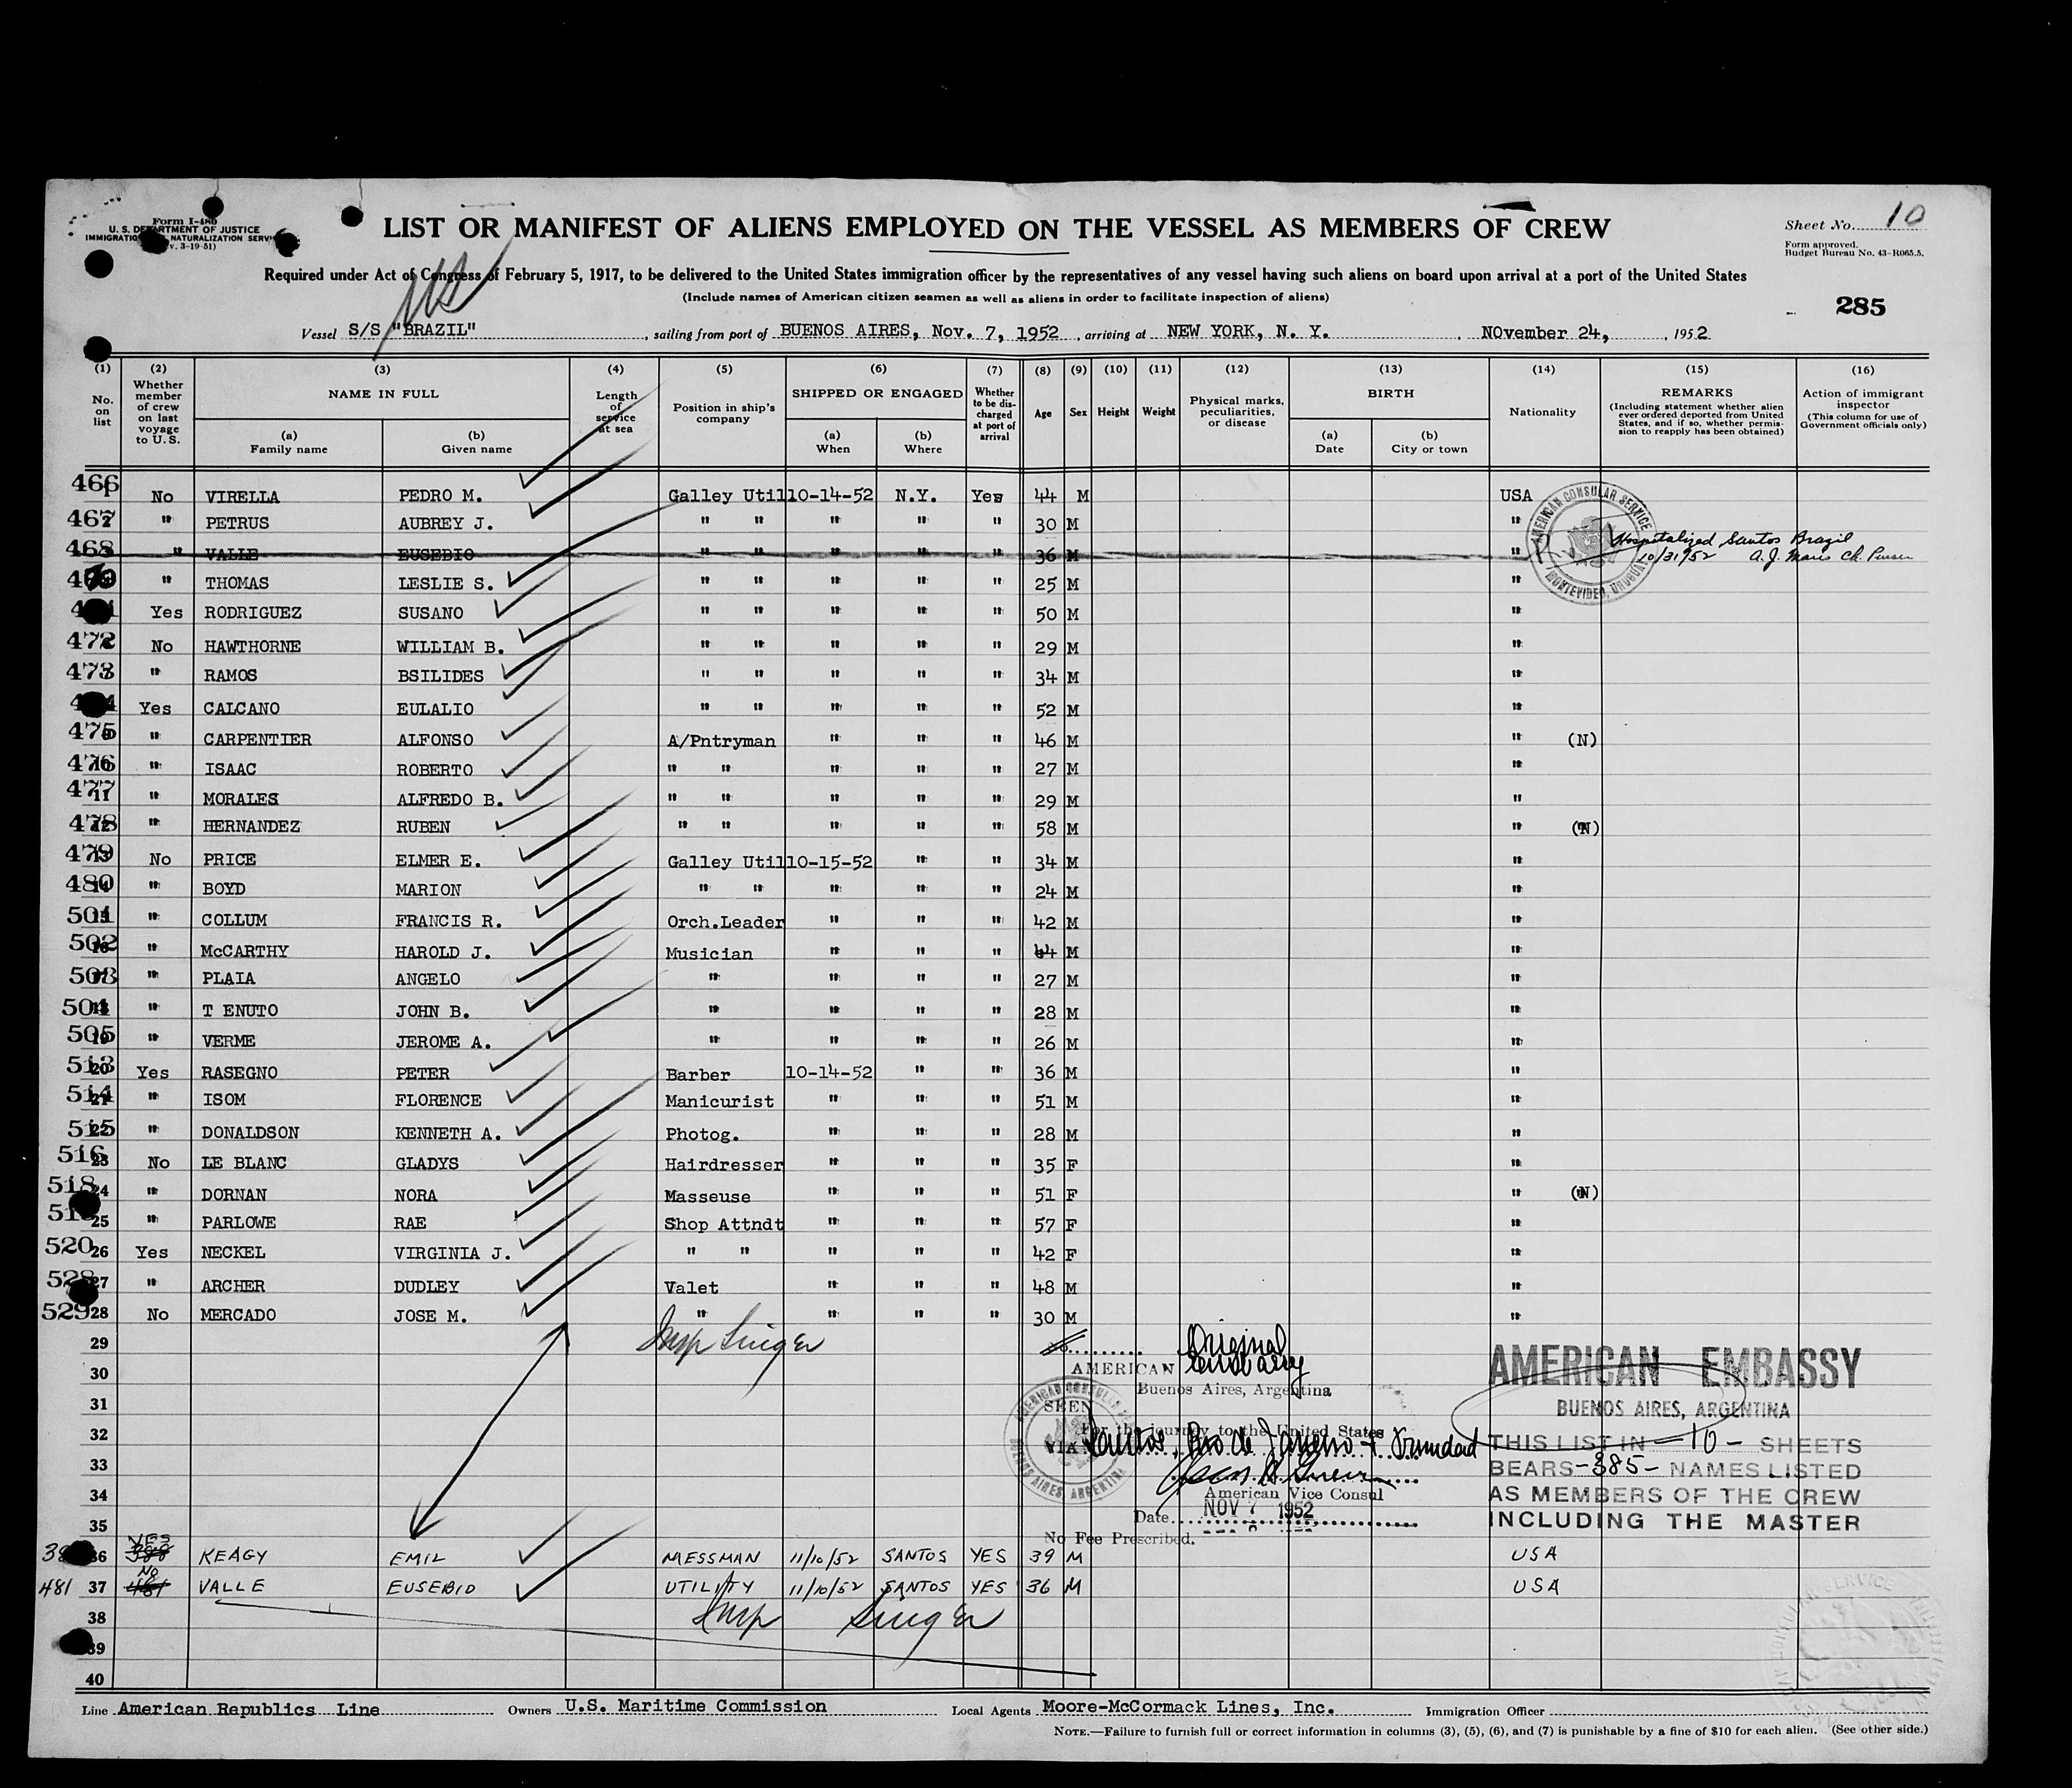 Form I-480
U. S. DEPARTMENT OF JUSTICE
IMMIGRATION NATURALIZATION SERVI
v. 3-19-51)
LIST OR MANIFEST OF ALIENS EMPLOYED ON THE VESSEL AS MEMBERS OF CREW
Sheet No. 10
Form approved.
Budget Bureau No. 43-R065.5.
Required under Act of Congress of February 5, 1917, to be delivered to the United States immigration officer by the representatives of any vessel having such aliens on board upon arrival at a port of the United States
(Include names of American citizen seamen as well as aliens in order to facilitate inspection of aliens)
285
Vessel S/S "BRAZIL", sailing from port of BUENOS AIRES, Nov. 7, 1952, arriving at NEW YORK, N. Y., NOvember 24, , 1952
(1) No. on list
(2) Whether member of crew on last voyage to U. S.
(3) NAME IN FULL
(a) Family name
(b) Given name
(4) Length of service at sea
(5) Position in ship's company
(6) SHIPPED OR ENGAGED
(a) When
(b) Where
(7) Whether to be discharged at port of arrival
(8) Age
(9) Sex
(10) Height
(11) Weight
(12) Physical marks, peculiarities, or disease
(13) BIRTH
(a) Date
(b) City or town
(14) Nationality
(15) REMARKS
(Including statement whether alien ever ordered deported from United States, and if so, whether permission to reapply has been obtained)
(16) Action of immigrant inspector
(This column for use of Government officials only)
466 No VIRELLA PEDRO M. Galley Util 10-14-52 N.Y. Yes 44 M USA
467 " PETRUS AUBREY J. " " " " " 30 M "
468 " VALLE EUSEBIO " " " " " 36 M " Hospitalized Santos Brazil
10/31/52
" THOMAS LESLIE S. " " " " " 25 M "
Yes RODRIGUEZ SUSANO " " " " " 50 M "
472 No HAWTHORNE WILLIAM B. " " " " " 29 M "
473 " RAMOS BSILIDES " " " " " 34 M "
Yes CALCANO EULALIO " " " " " 52 M "
475 " CARPENTIER ALFONSO A/Pntryman " " " 46 M " (N)
476 " ISAAC ROBERTO " " " " " 27 M "
477 11 " MORALES ALFREDO B. " " " " " 29 M "
478 12 " HERNANDEZ RUBEN " " " " " 58 M " (N)
479 13 No PRICE ELMER E. Galley Util 10-15-52 " " 34 M "
480 14 " BOYD MARION " " " " " 24 M "
501 15 " COLLUM FRANCIS R. Orch.Leader " " " 42 M "
502 16 " McCARTHY HAROLD J. Musician " " " 44 M "
503 17 " PLAIA ANGELO " " " " 27 M "
504 18 " T ENUTO JOHN B. " " " " 28 M "
505 19 " VERME JEROME A. " " " " 26 M "
513 20 Yes RASEGNO PETER Barber 10-14-52 " " 36 M "
514 21 " ISOM FLORENCE Manicurist " " " 51 M "
515 22 " DONALDSON KENNETH A. Photog. " " " 28 M "
516 23 No LE BLANC GLADYS Hairdresser " " " 35 F "
518 24 " DORNAN NORA Masseuse " " " 51 F " (N)
25 " PARLOWE RAE Shop Attndt " " " 57 F "
520 26 Yes NECKEL VIRGINIA J. " " " " " 42 F "
528 27 " ARCHER DUDLEY Valet " " " 48 M "
529 28 No MERCADO JOSE M. " " " " 30 M "
AMERICAN CONSULAR SERVICE
MONTEVIDEO, URUGUAY
29 Insp Singer
30
31
32
33
34
35
Original
AMERICAN Embassy
Buenos Aires, Argentina
SEEN
For the journey to the United States
VIA Santos, Rio de Janeiro & Trinidad
American Vice Consul
Date NOV 7 1952
No Fee Prescribed.
AMERICAN EMBASSY
BUENOS AIRES, ARGENTINA
THIS LIST IN -10- SHEETS
BEARS -385- NAMES LISTED
AS MEMBERS OF THE CREW
INCLUDING THE MASTER
36 YES KEAGY EMIL MESSMAN 11/10/52 SANTOS YES 39 M USA
481 37 NO VALLE EUSEBIO UTILITY 11/10/52 SANTOS YES 36 M USA
38 Insp Singer
39
40
Line American Republics Line Owners U.S. Maritime Commission Local Agents Moore-McCormack Lines, Inc. Immigration Officer
NOTE.—Failure to furnish full or correct information in columns (3), (5), (6), and (7) is punishable by a fine of $10 for each alien. (See other side.)